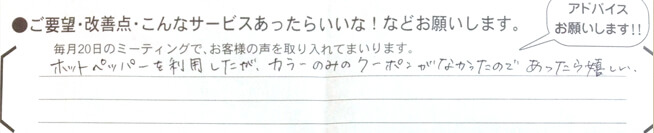 ●ご要望・改善点・こんなサービスあったらいいな！などお願いします。
アドバイス
お願いします!!
毎月20日のミーティングで、お客様の声を取り入れてまいります。
ホットペッパーを利用したが、カラーのみのクーポンがなかったので あったら嬉しい.